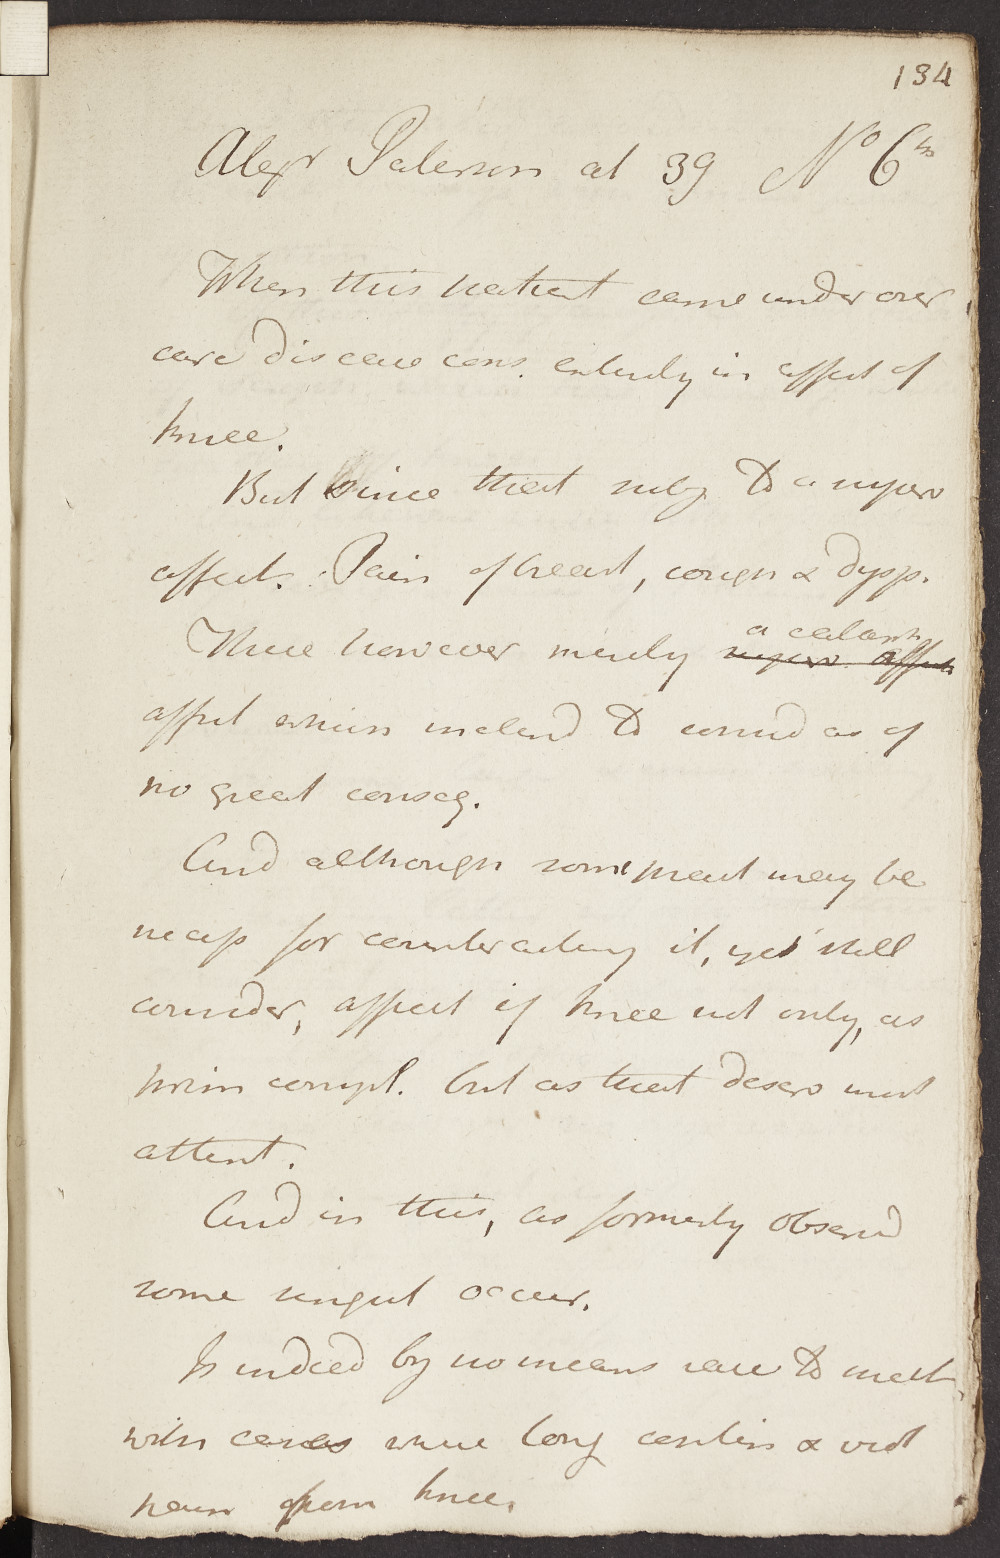 134
Alexr Paterson æt 39 No 6th
When this patient came under our
care disease cons. entirely in affect of
knee.
But since that subj. to a new
affect. Pain of breast, cough & dysp.
These however merely a catarrh
affect which inclined to consid as of
no great conseq.
And although some pract may be
necess for counteracting it, yet still
consider, affect of knee not only, as
prin compl. but as that deserv most
attent.
And in this, as formerly observd
some singul occur.
Is indeed by no means rare to meet
with cases where long contin & viol
pain from knee.